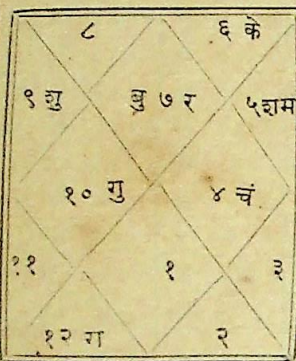 ८ ६ के
९ शु बु ७ र ५ शम
१० गु ४ चं
११ १ ३
१२ रा २